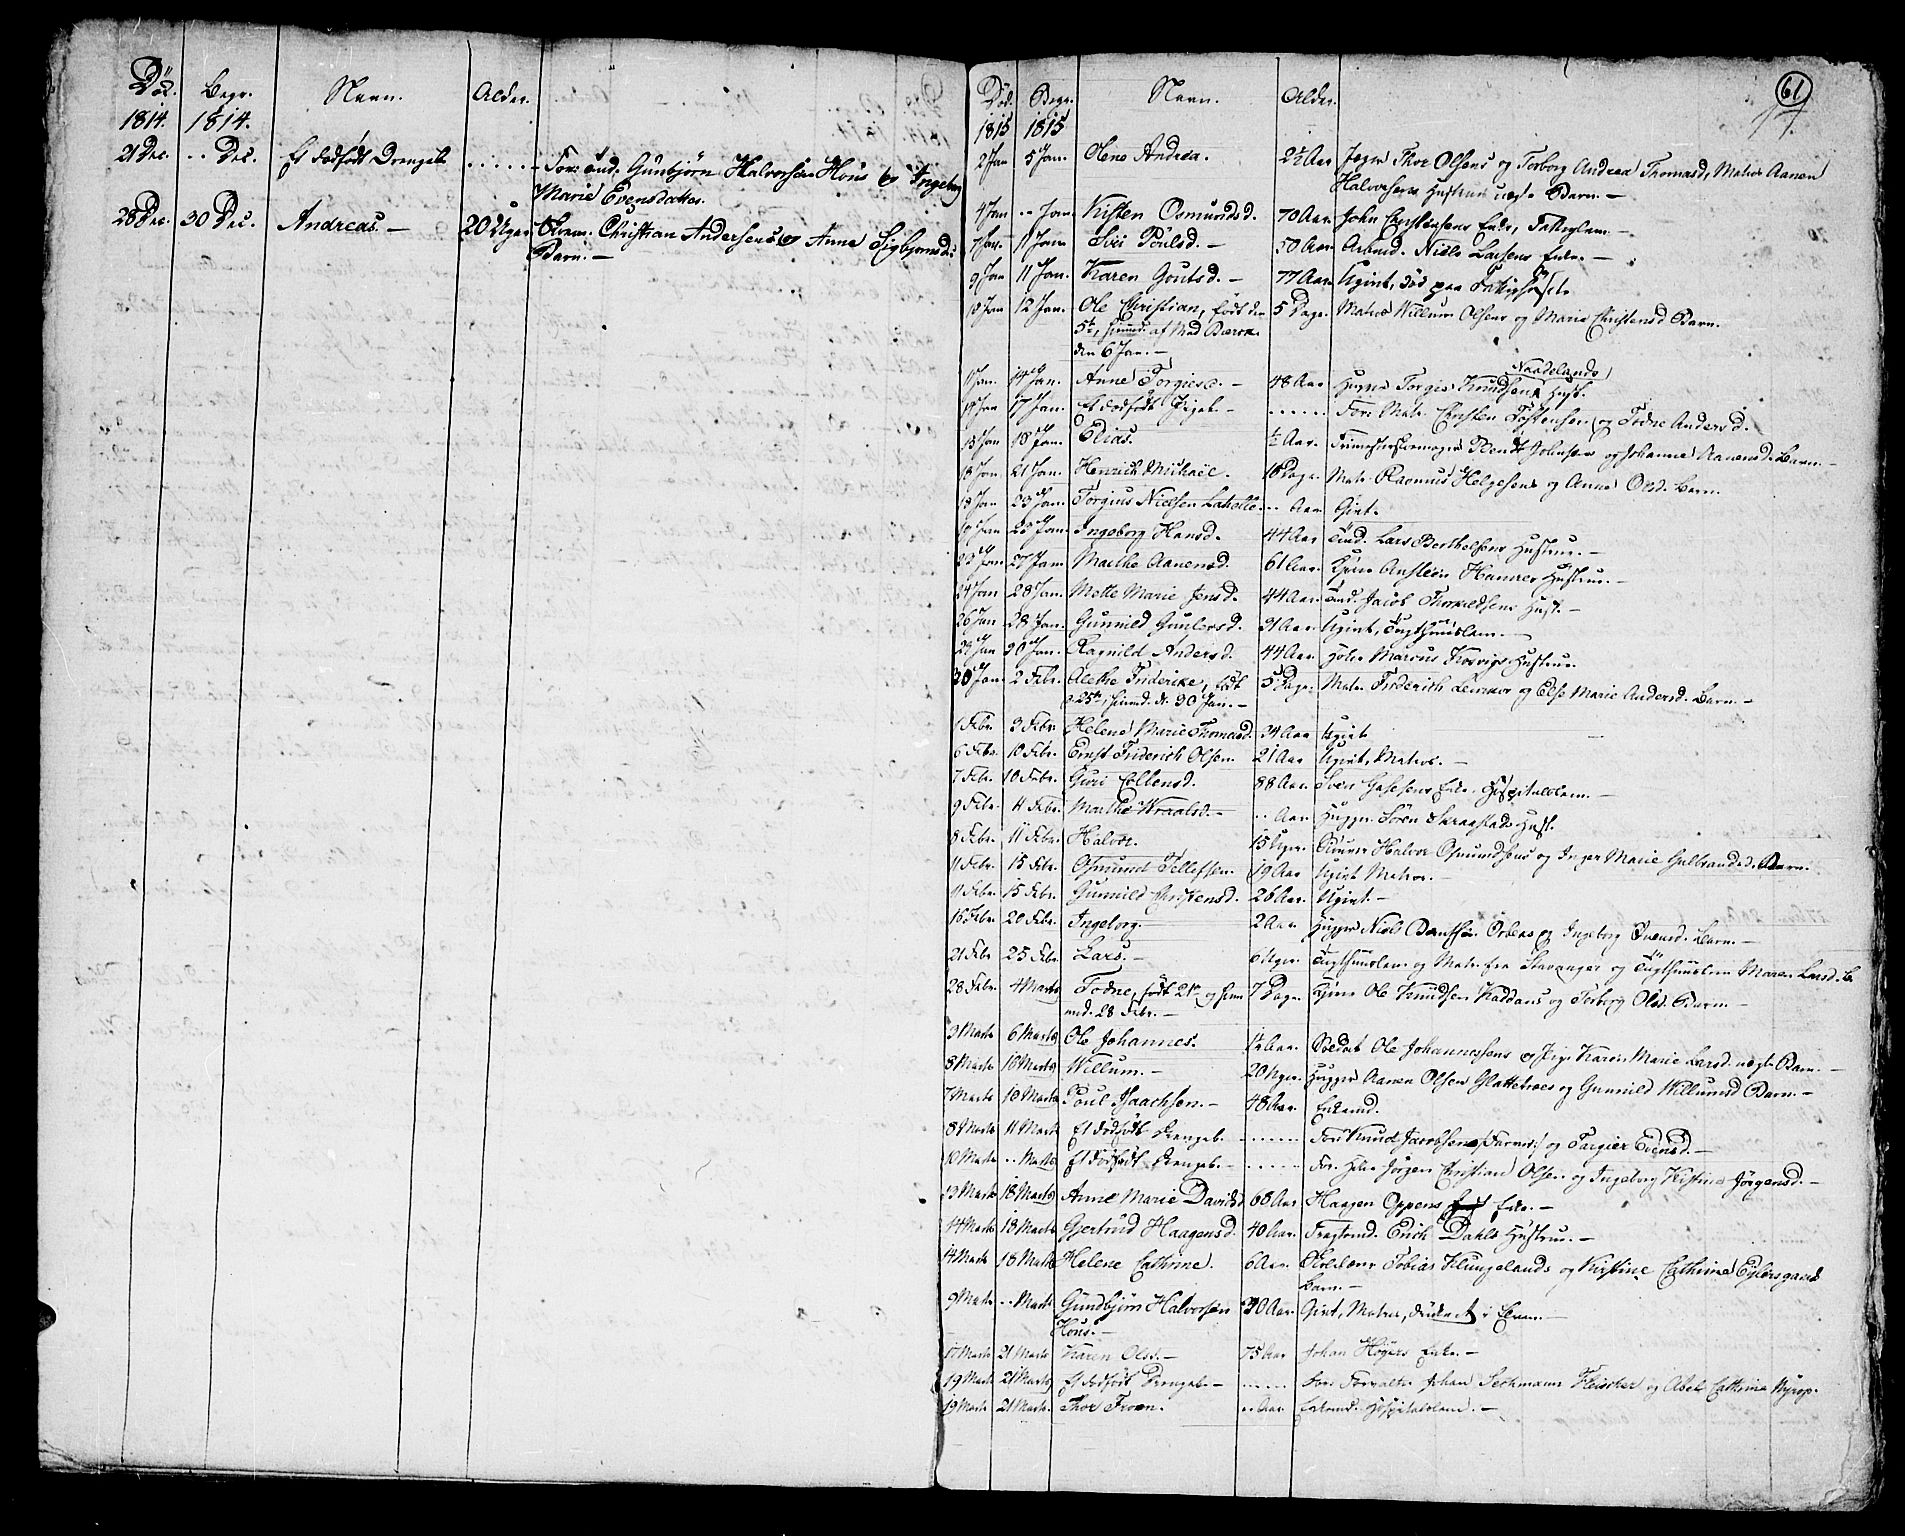 Död. Begr. Navn. Alder.
1814. 1814.
21 Dec. .. Dec. Et dødfødt Drengeb. ...... For: ... Gunbjörn Halvorsen Hous og Ingeborg
Marie Evensdatter.
28 Dec. 30 Dec. Andreas. — 20 Uger Christian Andersens og Anne Sigbjørnsd.
Barn. —
61
Död. Begr. Navn. Alder.
1815 1815
2 Jan 5 Jan. Olene Andrea. 2½ Aar Jæger Thor Olsens og Torborg Andrea Thomasd, Matros Aanen
Halvorsens Hustrues uægte Barn. —
4 Jan .. Jan. Kisten Osmundsd. 70 Aar. John Christensens Enke, Fattiglem. —
7 Jan. 11 Jan. Siri Poulsd. — 50 Aar. Arbmd. Niels Larsens Enke. —
9 Jan 11 Jan. Karen Goutsd. — 77 Aar. Ugivt, död paa Fattighuset.
10 Jan 12 Jan. Ole Christian, født den 5 Dage. Matros Willum Olsens og Marie Christensd Barn.
5te, hiemd. af Mad Bærcke
den 6 Jan. —
11 Jan. 14 Jan. Anne Torgiesd. — 48 Aar Torgies Knudsen Naadelands Hust.
14 Jan 17 Jan. Et dødfødt Pigeb. — ...... For: Matr. Christen Tostensen og Todne Andersd.
13 Jan 18 Jan. Elias. ½ Aar. Bendt Johnsens og Johanne Aanensd. Barn. —
18 Jan 21 Jan. Henrich Michael. 18 Dage. Matr. Rasmus Helgesens og Anne Olsd. Barn.
18 Jan 23 Jan. Torgius Nielsen Laholle .. Aar Givt.
19 Jan 23 Jan. Ingeborg Hansd. 44 Aar Lars Berthelsens Hustrue. —
23 Jan 27 Jan Marthe Aanensd. 61 Aar. Ansteen Hamres Hustrue. —
24 Jan 28 Jan. Mette Marie Jensd. 44 Aar. Jacob Thorvaldsens Hust. —
26 Jan 28 Jan. Gunnild Gunlersd. 31 Aar. Ugivt, Tugthuuslem. —
29 Jan 30 Jan. Ragnild Andersd. 44 Aar. Marcus Kosvigs Hustrue.
30 Jan. 2 Febr. Alethe Friderike, født 5 Dage. Matr. Friderich Lemker og Else Marie Andersd. Barn. —
d. 25de, hiemd. d. 30 Jan. —
1 Febr 3 Febr Helene Marie Thomasd. 34 Aar Ugivt
6 Febr. 10 Febr. Ernst Friderich Olsen 21 Aar Ugivt, Matros. —
7 Febr. 10 Febr. Guri Elleensd. 88 Aar. Sven Hospitalslem. —
9 Febr. 11 Febr. Marthe Wraalsd. — .. Aar Hugger Sören Skraastads Hust.
8 Febr. 11 Febr. Halvor. 15 Uger. Halvor Osmundsens og Inger Marie Gulbrandsd. Barn.
11 Febr. 15 Febr. Osmund Tellefsen 19 Aar Ugivt Matros. —
11 Febr. 15 Febr. Gunnild Christensd. 26 Aar. Ugivt. —
16 Febr. 20 Febr. Ingeborg. — 2 Aar. Hugger Niels Berntsen og Ingeborg Barn. —
21 Febr 25 Febr. Lars. — 6 Uger. Tugthuuslem og Matr. fra Stavanger og Tugthuuslem Maren Larsd. B.
28 Febr. 4 Marts Todne, født 21de og hiem 7 Dage. Ole Knudsen Kaddans og Torborg Olsd. Barn —
md. 28 Febr. —
3 Marts 6 Marts Ole Johannes. Soldat Ole Johannessens og Pige Karen Marie Larsd. uægte Barn. —
8 Marts 10 Marts Willum. — 20 Uger. Hugger Aanen Olsen Glattetraes og Gunnild Willumsd Barn. —
7 Marts 10 Marts Poul Isaachsen. — 48 Aar. Enkemd.
8 Marts 11 Marts Et dødfødt Drengeb. ...... For: Knud Jacobsen og Torgier Evensd. —
10 Marts .. Marts Et dødfødt Drengeb. — ...... For: Jörgen Christian Olsen og Ingeborg Kistine Jörgensd. —
13 Marts 18 Marts Anne Marie Davidsd 68 Aar Haagen Oppens Enke. —
14 Marts 18 Marts Gjertrud Haagensd. 40 Aar. Fragtmd. Erich Dahls Hustrue. —
14 Marts 18 Marts Helene Cathrine. 6 Aar. Tobias Klungelands og Kirstine Cathrine
Barn. —
9 Marts .. Marts Gundbjörn Halvorsen 30 Aar. Givt, Matros, druknet i Elven. —
Hous. —
17 Marts 21 Marts Karen Olsd. — 75 Aar Johan Höyers Enke. —
19 Marts 21 Marts Et dødfødt Drengeb. — ...... For: Forvalter Johan Sechmann Fleischer og Abel Cathrine Nyrop.
19 Marts 21 Marts. Thor Froen. .. Aar. Enkemd. Hospitalslem. —